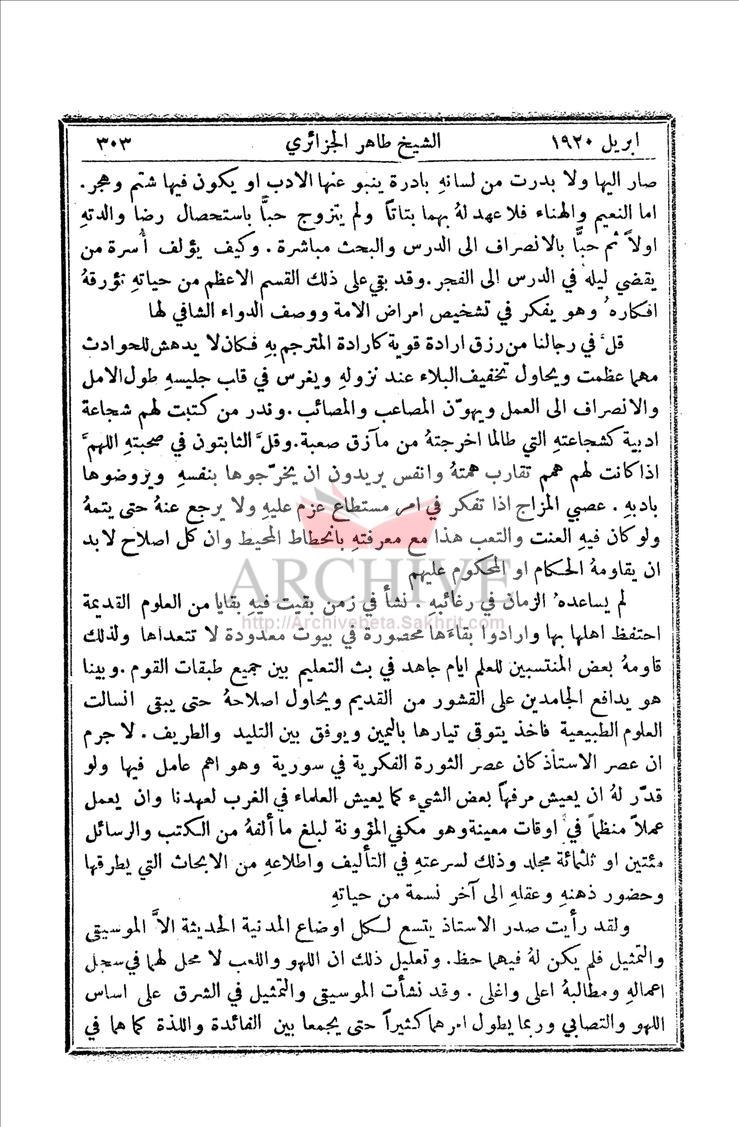 ابريل ١٩٢٠ الشيخ طاهر الجزائري ٣٠٣
صار اليها ولا بدرت من لسانهِ بادرة ينبو عنها الادب او يكون فيها شتم وهجر.
اما النعيم والهناء فلا عهد لهُ بهما بتاتاً ولم يتزوج حبًّا باستحصال رضا والدتهِ
اولاً ثم حبًّا بالانصراف الى الدرس والبحث مباشرة . وكيف يؤلف أسرة من
يقضي ليله في الدرس الى الفجر . وقد بقي على ذلك القسم الاعظم من حياتهِ تؤرقهُ
افكارهُ وهو يفكر في تشخيص امراض الامة ووصف الدواء الشافي لها
قلَّ في رجالنا من رزق ارادة قوية كارادة المترجم بهِ فكان لا يدهش للحوادث
مهما عظمت ويحاول تخفيف البلاء عند نزولهِ ويغرس في قلب جليسهِ طول الامل
والانصراف الى العمل ويهوّن المصاعب والمصائب . وندر من كتبت لهم شجاعة
ادبية كشجاعتهِ التي طالما اخرجتهُ من مآزق صعبة . وقلَّ الثابتون في صحبتهِ اللهمَّ
اذا كانت لهم همم تقارب همتهُ وانفس يريدون ان يخرّجوها بنفسهِ ويروضوها
بادبهِ . عصبي المزاج اذا تفكر في امر مستطاع عزم عليهِ ولا يرجع عنهُ حتى يتمهُ
ولو كان فيهِ العنت والتعب هذا مع معرفتهِ بانحطاط المحيط وان كل اصلاح لا بد
ان يقاومهُ الحكام او المحكوم عليهم
ARCHIVE
لم يساعدهُ الزمان في رغائبهِ . نشأ في زمن بقيت فيهِ بقايا من العلوم القديمة
http://Archivebeta.Sakhrit.com
احتفظ اهلها بها وارادوا بقاءها محصورة في بيوت معدودة لا تتعداها ولذلك
قاومهُ بعض المنتسبين للعلم ايام جاهد في بث التعليم بين جميع طبقات القوم . وبينا
هو يدافع الجامدين على القشور من القديم ويحاول اصلاحهُ حتى يبقى انسالت
العلوم الطبيعية فاخذ يتوقى تيارها باليمين ويوفق بين التليد والطريف . لا جرم
ان عصر الاستاذ كان عصر الثورة الفكرية في سورية وهو اهم عامل فيها ولو
قدّر لهُ ان يعيش مرفهاً بعض الشيء كما يعيش العلماء في الغرب لعهدنا وان يعمل
عملاً منظماً في اوقات معينة وهو مكفي المؤونة لبلغ ما ألفهُ من الكتب والرسائل
مئتين او ثلثمائة مجلد وذلك لسرعتهِ في التأليف واطلاعهِ من الابحاث التي يطرقها
وحضور ذهنهِ وعقلهِ الى آخر نسمة من حياتهِ
ولقد رأيت صدر الاستاذ يتسع لكل اوضاع المدنية الحديثة الاَّ الموسيقى
والتمثيل فلم يكن لهُ فيهما حظ . وتعليل ذلك ان اللهو واللعب لا محل لهما في سجل
اعمالهِ ومطالبهُ اعلى واغلى . وقد نشأت الموسيقى والتمثيل في الشرق على اساس
اللهو والتصابي وربما يطول امرهما كثيراً حتى يجمعا بين الفائدة واللذة كما هما في